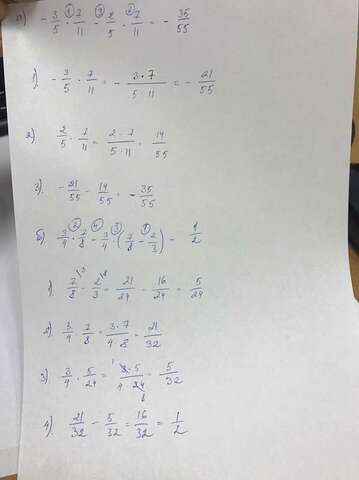 а) - 3/5 ·① 7/11 -③ 2/5 ·② 7/11 = - 35/55
1). - 3/5 · 7/11 = - 3·7/5·11 = - 21/55
2) 2/5 · 7/11 = 2·7/5·11 = 14/55
3). - 21/55 - 14/55 = - 35/55
б) 3/4 ·② 7/8 -④ 3/4 ·③ (7/8 -① 2/3) = 1/2
1). 7/8 \3 - 2/3 \8 = 21/24 - 16/24 = 5/24
2) 3/4 · 7/8 = 3·7/4·8 = 21/32
3) 3/4 · 5/24 = 1 3·5/4·24 8 = 5/32
4) 21/32 - 5/32 = 16/32 = 1/2